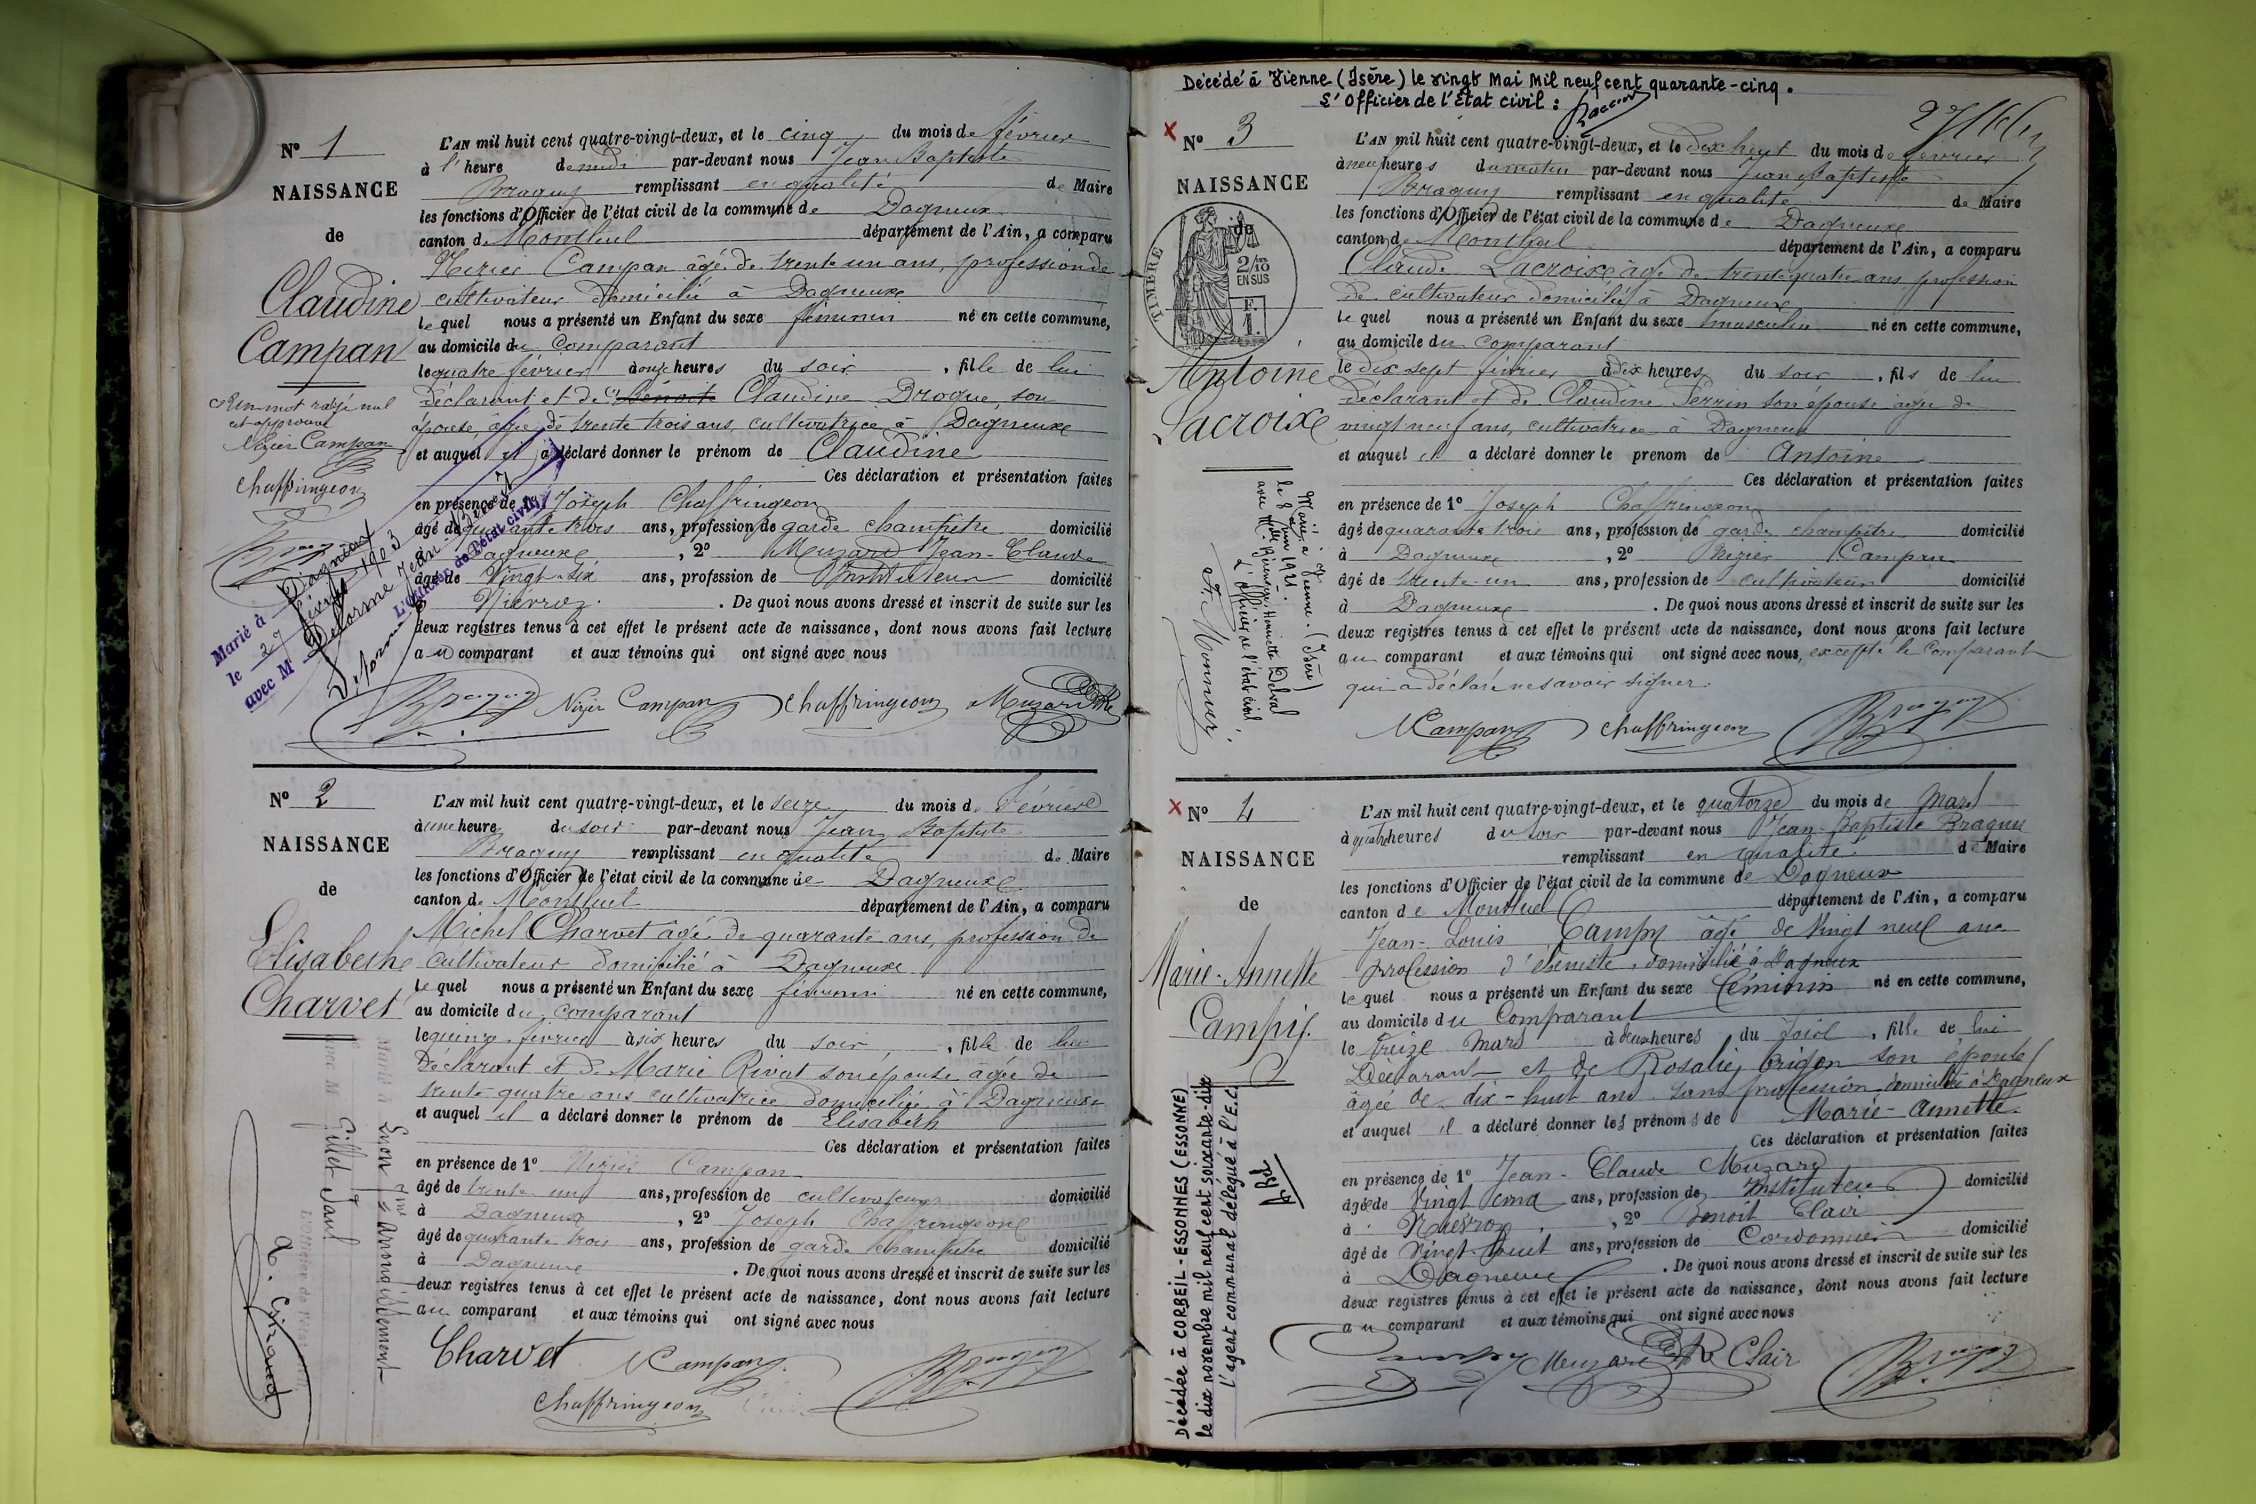 N° 1
NAISSANCE
de
Claudine
Campan
Un mot rayé nul
et approuvé
Nizier Campan
Chaffringeon
L'AN mil huit cent quatre-vingt-deux, et le cinq du mois de février
à l' heure de midi par-devant nous Jean Baptiste
Braguy remplissant en qualité de Maire
les fonctions d'Officier de l'état civil de la commune de Dagneux
canton de Montluel département de l'Ain, a comparu
Nizier Campan âgé de trente un ans, profession de
cultivateur domicilié à Dagneux
le quel nous a présenté un Enfant du sexe féminin né en cette commune,
au domicile du comparant
le quatre février à onze heures du soir , fille de lui
déclarant et de Benoite Claudine Drogue, son
épouse, âgée de trente trois ans, cultivatrice à Dagneux
et auquel il a déclaré donner le prénom de Claudine
Ces déclaration et présentation faites
en présence de 1° Joseph Chaffringeon
âgé de quarante trois ans, profession de garde champêtre domicilié
à Dagneux , 2° Muzard Jean-Claude
âgé de Vingt-six ans, profession de Instituteur domicilié
à Nievroz . De quoi nous avons dressé et inscrit de suite sur les
deux registres tenus à cet effet le présent acte de naissance, dont nous avons fait lecture
au comparant et aux témoins qui ont signé avec nous
Marié à Dagneux
le 27 février 1903
avec M Delorme Jean
L'Officier de l'état civil,
Nizier Campan Chaffringeon Muzard
N° 2
NAISSANCE
de
Elisabeth
Charvet
L'AN mil huit cent quatre-vingt-deux, et le seize du mois de Février
à une heure du soir par-devant nous Jean Baptiste
Braguy remplissant en qualité de Maire
les fonctions d'Officier de l'état civil de la commune de Dagneux
canton de Montluel département de l'Ain, a comparu
Michel Charvet âgé de quarante ans, profession de
cultivateur domicilié à Dagneux
le quel nous a présenté un Enfant du sexe féminin né en cette commune,
au domicile du comparant
le quinze février à six heures du soir , fille de lui
Déclarant et de Marie Rivat son épouse âgée de
trente quatre ans cultivatrice domiciliée à Dagneux
et auquel il a déclaré donner le prénom de Elisabeth
Ces déclaration et présentation faites
en présence de 1° Nizier Campan
âgé de trente un ans, profession de cultivateur domicilié
à Dagneux , 2° Joseph Chaffringeon
âgé de quarante trois ans, profession de garde champêtre domicilié
à Dagneux . De quoi nous avons dressé et inscrit de suite sur les
deux registres tenus à cet effet le présent acte de naissance, dont nous avons fait lecture
au comparant et aux témoins qui ont signé avec nous
Marié à Lyon 7me arrondissement
avec M Gillet Paul
Charvet N Campan
Chaffringeon
Décédé à Vienne (Isère) le vingt Mai Mil neuf cent quarante-cinq.
L'Officier de l'État civil :
N° 3
NAISSANCE
de
TIMBRE
2/10
EN SUS
F.
1.
Antoine
Lacroix
L'AN mil huit cent quatre-vingt-deux, et le dix huit du mois de février
à neuf heures du matin par-devant nous Jean Baptiste
Braguy remplissant en qualité de Maire
les fonctions d'Officier de l'état civil de la commune de Dagneux
canton de Montluel département de l'Ain, a comparu
Claude Lacroix âgé de trente quatre ans profession
de cultivateur domicilié à Dagneux
le quel nous a présenté un Enfant du sexe masculin né en cette commune,
au domicile du comparant
le dix sept février à dix heures du soir , fils de lui
déclarant et de Claudine Perrin son épouse âgée de
vingt neuf ans, cultivatrice à Dagneux
et auquel il a déclaré donner le prénom de Antoine
Ces déclaration et présentation faites
en présence de 1° Joseph Chaffringeon
âgé de quarante trois ans, profession de garde champêtre domicilié
à Dagneux , 2° Nizier Campan
âgé de trente-un ans, profession de cultivateur domicilié
à Dagneux . De quoi nous avons dressé et inscrit de suite sur les
deux registres tenus à cet effet le présent acte de naissance, dont nous avons fait lecture
au comparant et aux témoins qui ont signé avec nous, excepté le comparant
qui a déclaré ne savoir signer.
Marié à Vienne. (Isère)
le 8 juin 1921.
avec Henriette Delval
L'officier de l'état civil
Monnier
N Campan Chaffringeon
N° 4
NAISSANCE
de
Marie-Annette
Campis.
L'AN mil huit cent quatre-vingt-deux, et le quatorze du mois de Mars
à quatre heures du soir par-devant nous Jean-Baptiste Braguy
remplissant en qualité de Maire
les fonctions d'Officier de l'état civil de la commune de Dagneux
canton de Montluel département de l'Ain, a comparu
Jean-Louis Campy âgé de Vingt neuf ans
profession d'ébéniste, domicilié à Dagneux
le quel nous a présenté un Enfant du sexe Féminin né en cette commune,
au domicile du Comparant
le Treize Mars à deux heures du soir , fille de lui
Déclarant et de Rosalie son épouse
âgée de dix-huit ans sans profession, domiciliée à Dagneux
et auquel il a déclaré donner les prénoms de Marie-Annette.
Ces déclaration et présentation faites
en présence de 1° Jean-Claude Muzard
âgé de Vingt cinq ans, profession de Instituteur domicilié
à Nievroz , 2° Benoit Clair
âgé de Vingt-huit ans, profession de Cordonnier domicilié
à Dagneux . De quoi nous avons dressé et inscrit de suite sur les
deux registres tenus à cet effet le présent acte de naissance, dont nous avons fait lecture
au comparant et aux témoins qui ont signé avec nous
Décédée à CORBEIL-ESSONNES (ESSONNE)
le dix novembre mil neuf cent soixante-dix
L'agent communal délégué à l'E.C.
Muzard Clair